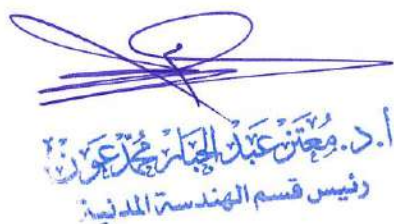 أ.د. معتز عبد الجبار محمد عون
رئيس قسم الهندسة المدنية